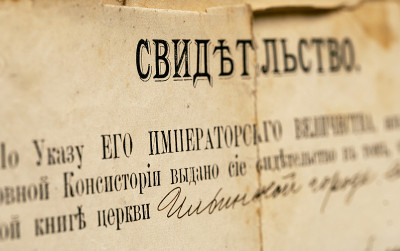 СВИДѢТЕЛЬСТВО.
По Указу ЕГО ИМПЕРАТОРСКГО ВЕЛИЧЕСТВА,
овной Консисторіи выдано сіе свидѣтельство въ томъ,
ой книгѣ церкви Ильинской города